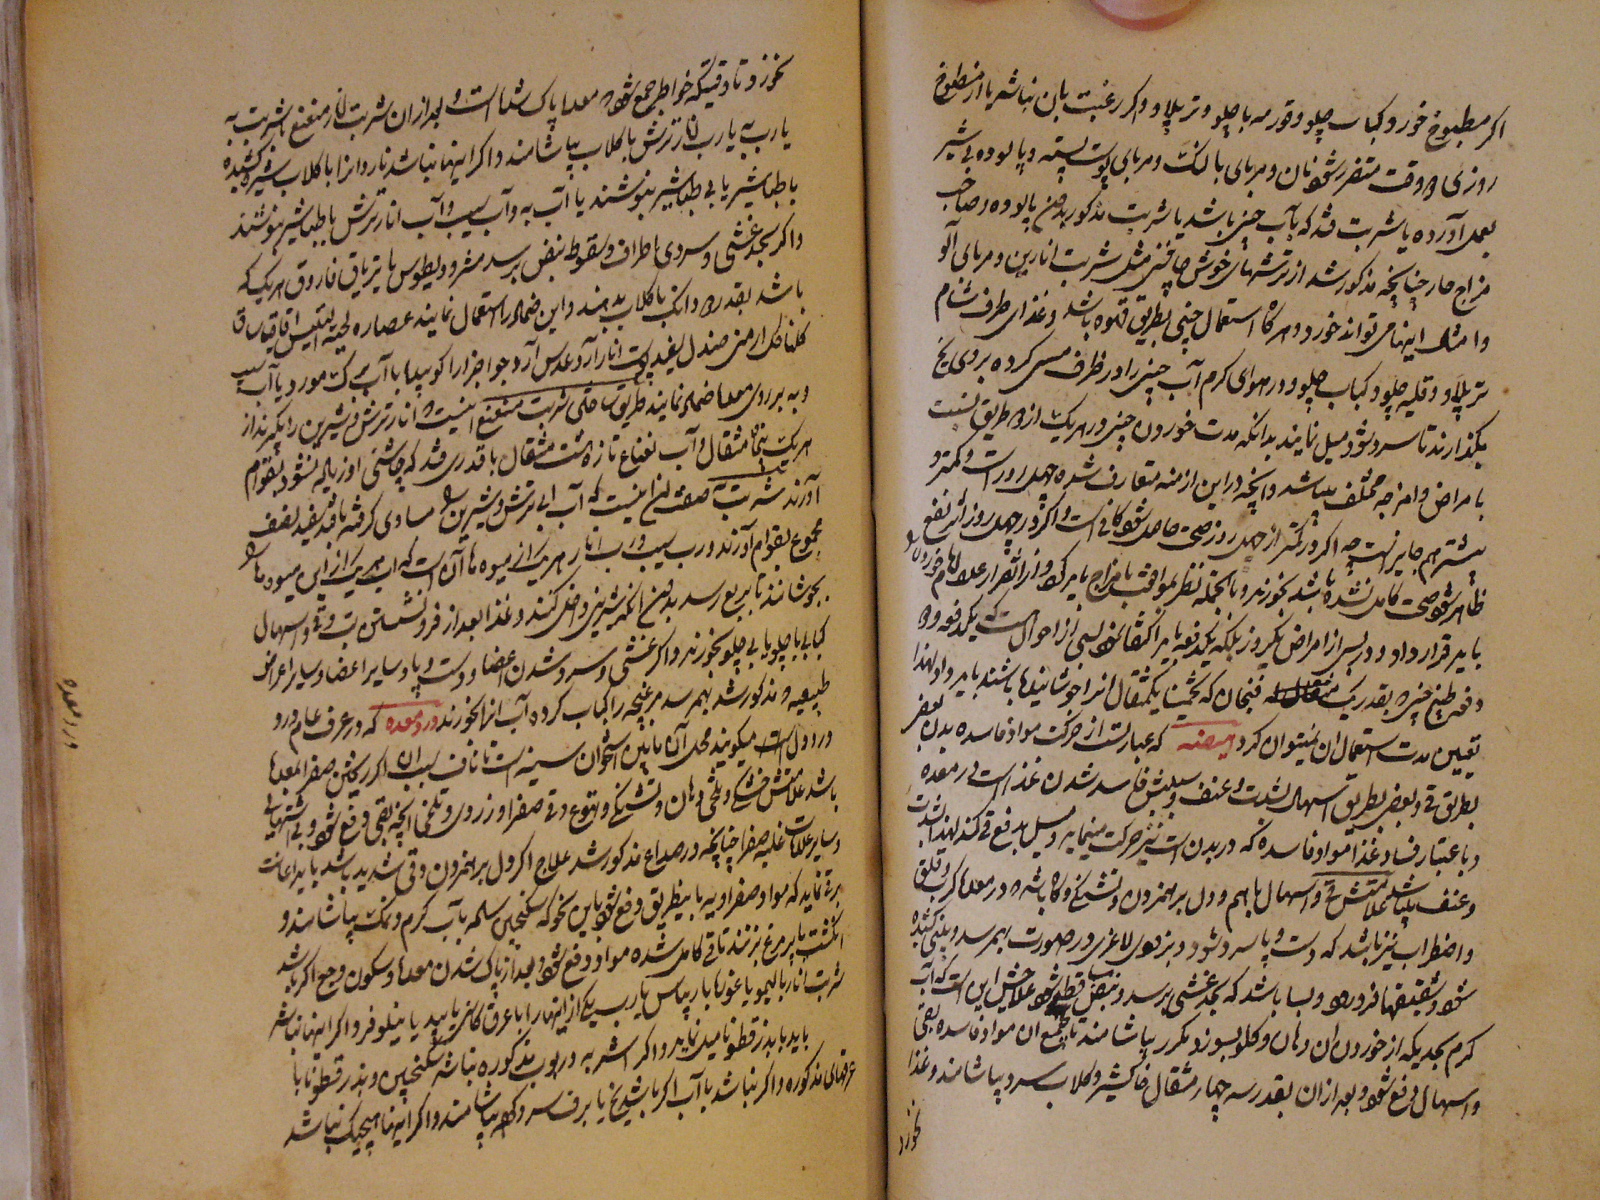 اکر مطبوخ خورد کباب چلو و قورمه با چلو و تر پلاو و اکر رغبت بان نباشد یا از مطبوخ
روزی دو وقت متضرر شود نان و مربای بالنک و مربای پوست پسته و پالوده بی شیر
بعمل آورده یا شربت قند که بآب چینی باشد یا شربت مذکور بدین پالوده و صاحب
مزاج حار چنانچه مذکور شد از ترشیهای خوش چاشنی مثل شربت انارین و مربای آلو
و امثال اینها می تواند خورد و هرکاه استعمال چینی بطریق قهوه باشد و غذای طرف شام
تر پلاو و قلیه چلو و کباب چلو و در هوای کرم آب چینی را در ظرف مس کرده بر روی یخ
بکذارند تا سرد شود میل نمایند بدانکه مدت خوردن چینی در هر یک ازو طریق نسبت
با مراض و امزجه مختلف میباشد و آنچه در این ازمنه متعارف شده چهل روز است و کمتر و
بیشتر هم جایز است چه اکر در کمتر از چهل روز صحت حاصل شود کافی است و اکر در چهل روز اثر نفع
ظاهر شود صحت کامل نشده باشد بخورند و بالجمله نظر بموافقت با مزاج باید کرد
باید قرار داد و در بسی از امراض بکروز بلکه بیکدفعه باید اکتفا نمود
دفعه طبخ چینی بقدر یک فنجان که تخمینا یکمثقال انرا جوشانیده باشند باید داد لهذا
تعیین مدت استعمال ان نمیتوان کرد هیضه که عبارتست از حرکت مواد فاسده بدن بعض
بطریق قی و بعض بطریق اسهال بشدت و عنف و سببش فاسد شدن غذاست در معده
و باعتبار فساد غذا مواد فاسده که در بدن است نیز حرکت مینماید و میل بدفع میکند لهذا بشدت
و عنف میباشد علامتش قی و اسهال باهم و دل برهمزدن و تشنکی و کاه باشد که در معده کرب و قلق
و اضطراب نیز باشد که دست و پا سرد شود و بزودی لاغری در صورت بهمرسد و بینی کشیده
شود و شقیقها فرو رود و بسا باشد که بحد غشی برسد و نبض ساقط شود علاجش این است که آب
کرم بحدیکه از خوردن ان دهان و کلو بسوزد مکرر بیاشامند تا جمیع ان مواد فاسده بقی
و اسهال دفع شود و بعد از ان بقدر سه چهار مثقال خاکشیر و کلاب سرد بیاشامند و غذا
نخورد
نخورند و تا وقتیکه خواطر جمع شود که معده پاک شده است و بعد از ان شربت انار منعنع یا شربت به
یا رب به یا رب انار ترش با کلاب بیاشامند و اکر اینها نباشد ناردانرا با کلاب شیره کشیده
با طباشیر یا بی طباشیر بنوشند یا آب به و آب سیب و آب انار ترش با طباشیر بنوشند
و اکر بحد غشی و سردی اطراف و سقوط نبض برسد مثرودیطوس یا تریاق فاروق هر یک که
باشد بقدر دو دانک با کلاب بدهند و این ضماد را استعمال نمایند عصاره لحیة التیس اقاقیا سماق
کلنار کل ارمنی صندل سفید پوست انار آرد عدس آرد جو اجزا را کوبیده با آب برک مورد یا آب سیب
و به بر روی معده ضماد نمایند طریق ساختن شربت منعنع اینست که انار ترش و شیرین را بکیرند از
هر یک پنجاه مثقال و آب نعناع تازه شصت مثقال با قدری قند که چاشنی او زیاده نشود بقوام
آورند شربت به صفت ان اینست که آب به ترش و شیرین را مساوی کرفته با قند سفید نصف
مجموع بقوام آورند و رب سیب و رب انار و هر یک از میوه ها آن است که آب هر یک از این میوه ها را
بجوشانند تا بربع رسد بدون آنکه شیرینی داخل کنند و غذا بعد از فرو نشستن تب و قی و اسهال
کباب با چلو یا بی چلو بخورند و اکر غشی و سرد شدن اعضا و دست و پا و سایر اعضا و سایر اعراض
طبیعیه که مذکور شد بهمرسد مرغ بچه را کباب کرده آب انرا بخورند درد معده که در عرف عام درد
درد دل است میکویند محل آن مابین استخوان سینه است تا ناف سبب ان اکر ریختن صفرا بمعده
باشد علامتش خشکی و تلخی دهان و تشنکی و تهوع و قی صفرا و زردی و تلخی آنچه بقی دفع شود و بی اشتهائی
و سایر علامات غلبه صفرا چنانچه در صداع مذکور شد علاج اکر دل برهمزدن و قی شدید باشد باید اعانت
بر قی نماید که مواد صفراویه باینطریق دفع شود باین نحو که سکنجبین ساده با آب کرم و نمک بیاشامند و
انکشت یا پر مرغ بزنند تا قی کامل شده مواد دفع شود و بعد از پاک شدن معده و سکون وجع اکر باشد
شربت انار یا لیمو یا غوره یا ریباس یا رب یکی از اینها را با عرق کاسنی یا بید یا نیلوفر و اکر اینها نباشد
باید با بذر قطونا میل نماید و اکر اشربه و ربوب مذکوره نباشد سکنجبین و بذر قطونا با
عرقهای مذکوره و اکر نباشد با آب اکر باشد یخ یا برف سرد کرده بیاشامند و اکر اینها هیچیک نباشد
درد معده